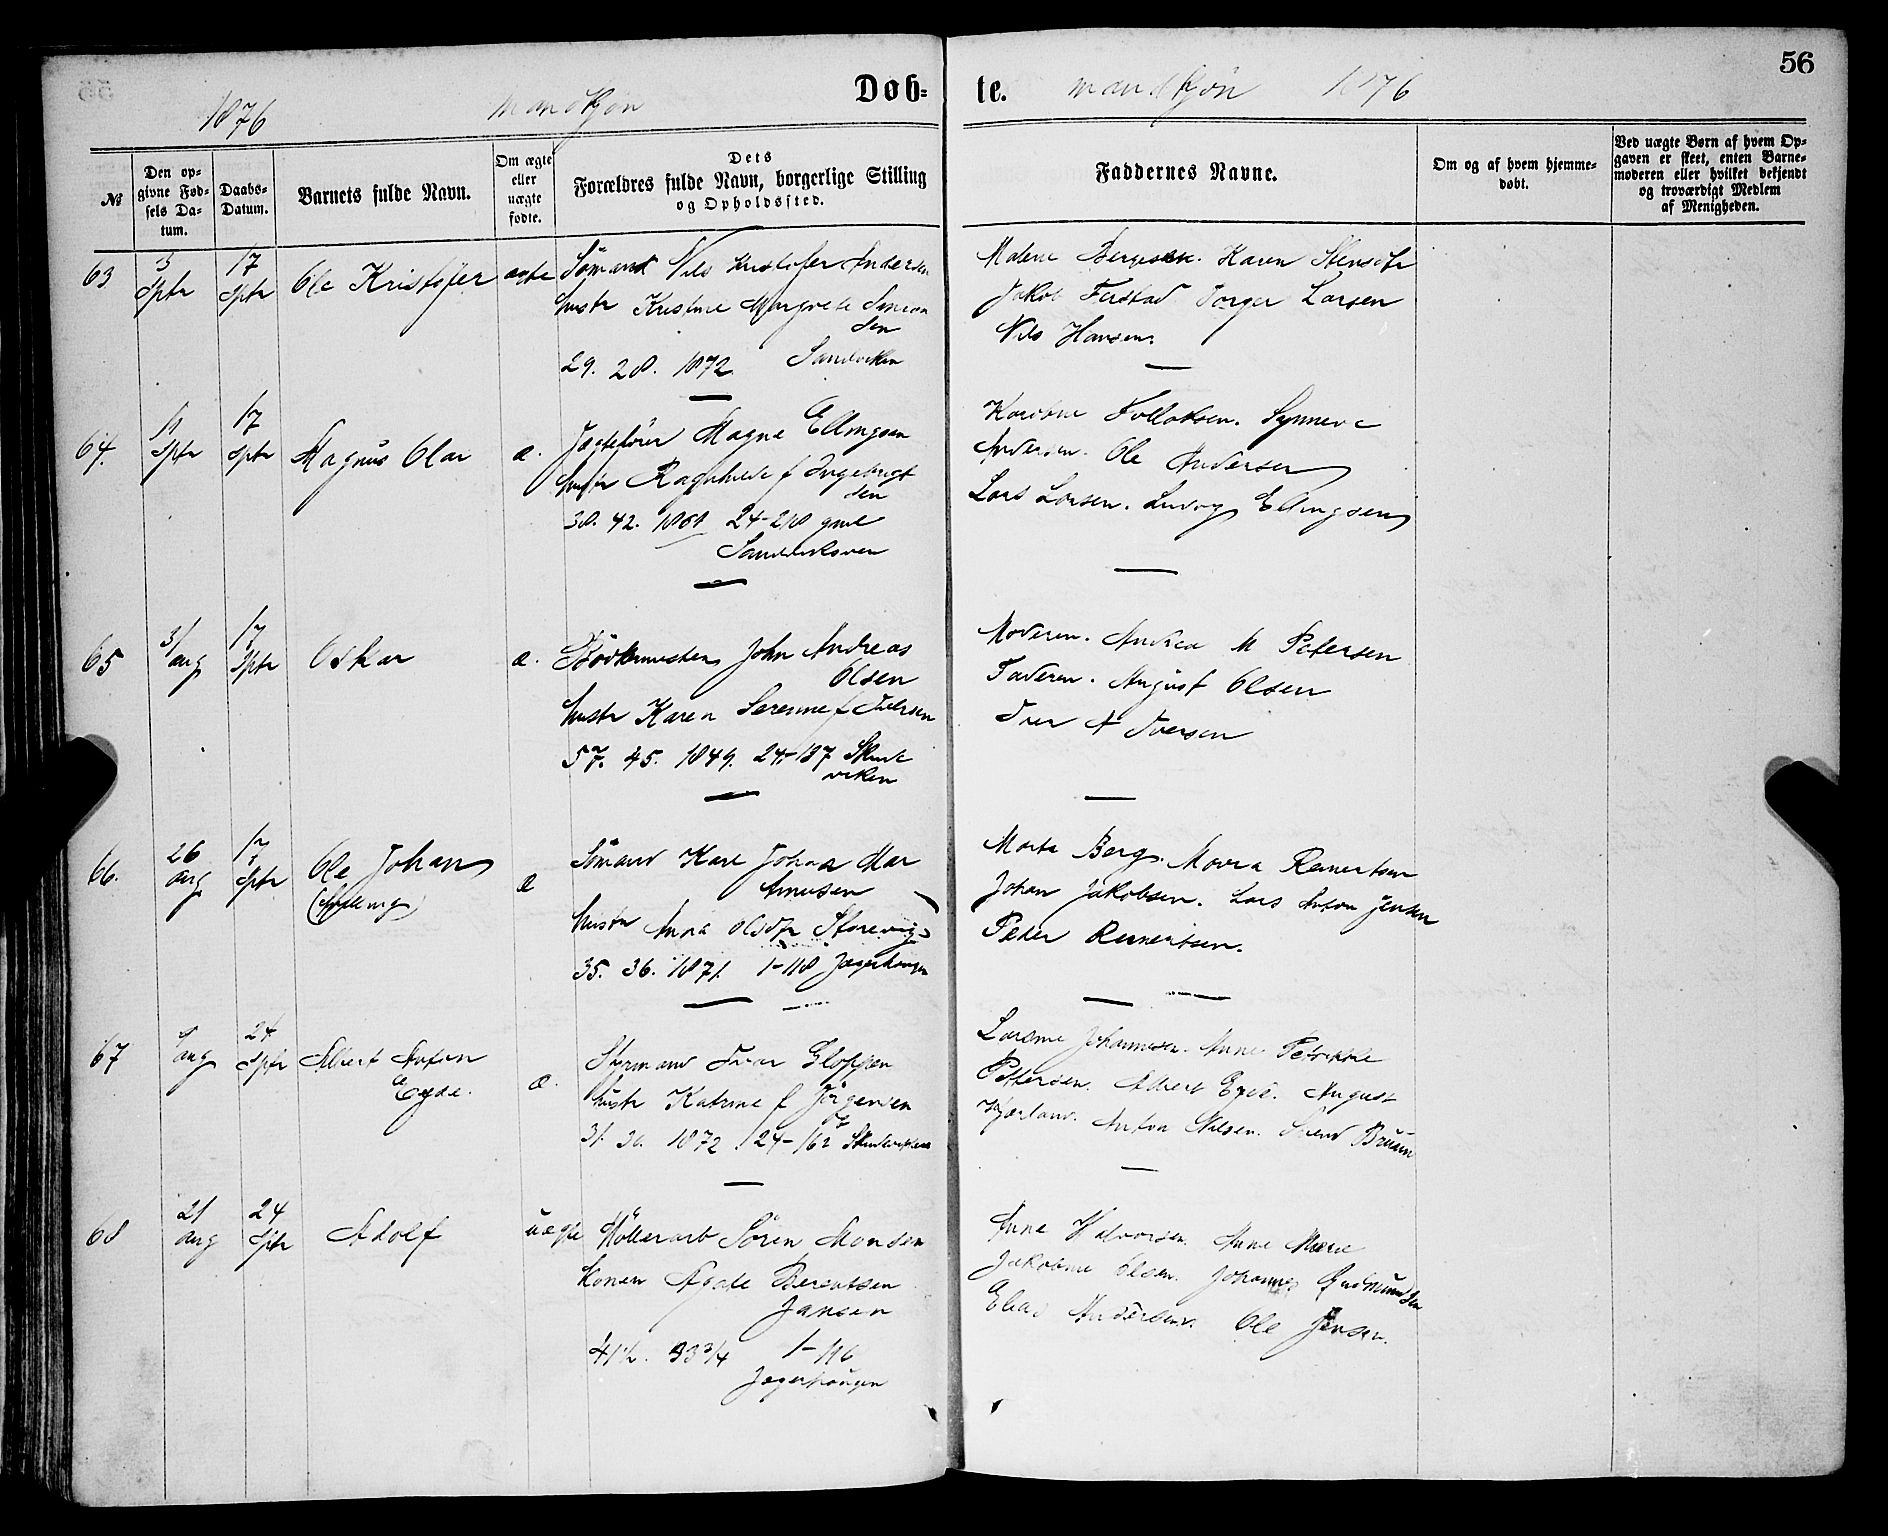 56
Døb-
te.
1876 mandkjøn
mandkjøn 1876
№
Den op-
givne Fød-
sels Da-
tum.
Daabs-
Datum.
Barnets fulde Navn.
Om ægte
eller
uægte
fødte.
Dets
Forældres fulde Navn, borgerlige Stilling
og Opholdssted.
Faddernes Navne.
Om og af hvem hjemme-
døbt.
Ved uægte Børn af hvem Op-
gaven er skeet, enten Barne-
moderen eller hvilket bekjendt
og troværdigt Medlem
af Menigheden.
63
3
Sptr
17
Sptr
Ole Kristofer
ægte
Sømand Nils Kristofer Andersen
hustr Kristine Margrete Simon
sen
29. 28. 1872 Sandviken
Malene Karen
Jakob Torger Larsen
Nils Hansen.
64.
11
Sptr
17
Sptr
Magnus Olai
æ.
Jægtefører Magne Ellingsen
hustr Ragnhilde f Ingebrigt
sen
38. 42. 24-218
Synneve
Andersen. Ole Andersen
Lars Larsen. Ludvig Ellingsen
65
31
aug
17
Sptr
Oskar
æ.
John Andreas
Olsen
hustr Karen Serenne f Iversen
57. 45. 1849. 24-137 Skute
viken
Moderen. Andrea M Petersen
Faderen. August Olsen
Iver A Iversen
66.
26
aug
17
Sptr
Ole Johan
æ
Sømand Karl Johan Mar
Arnesen
hustr Anna Olsdtr Storevig
35. 36. 1871. 1-118 Jægerhaugen
Marta Berg. Reinertsen
Johan Jakobsen. Lars Anton Jensen
Peder Reinertsen.
67
aug
24
Sptr
Albert Anton
Eyde.
æ.
Styrmand Ivar Gloppen
hustr Katrine f Jørgensen
31. 30. 1872 24-162
Johannesen. Anne
Pettersen. Albert Eyde. August
Anton Nilsen.
68
21
aug
24
Sptr
Adolf
uægte
Møllerarb Søren Monsen
Konen Agate Berentsen
Jansen
41½. 33¾ 1-116
Jægerhaugen
Anne Halvorsen. Anne Marie
Jakobine Olsen. Johannes Gudmundsen
Elias Andersen. Ole Jensen.